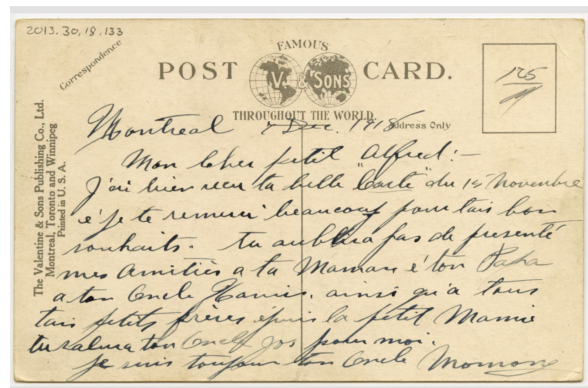 2013.30.18.133
Correspondence
FAMOUS
POST CARD.
V. & SONS
THROUGHOUT THE WORLD.
Address Only
125
The Valentine & Sons Publishing Co., Ltd.
Montreal, Toronto and Winnipeg
Printed in U. S. A.
Montreal Dec. 1918
Mon cher petit Alfred:-
J'ai bien recu ta belle "carte" du 1er Novembre
é je te remerci beaucoup pour tais bon
souhaits. tu aublira pas de presenté
mes Amitiés a ta Maman é ton Papa
a ton Oncle ainsi qu'a tous
tais petits frères épuis la petit Mamie
tu salura ton Oncle Jos pour moi.
je suis toujour ton Oncle Momond